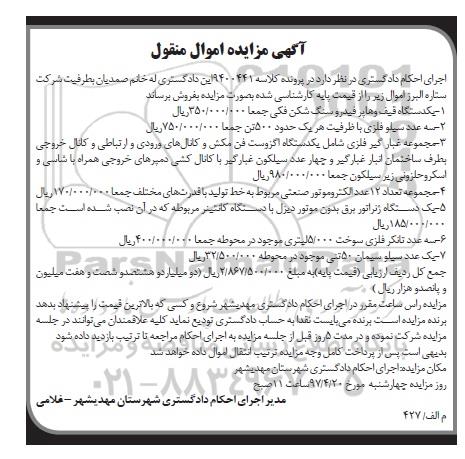 آگهی مزایده اموال منقول
اجرای احکام دادگستری در نظر دارد در پرونده کلاسه ۹۴۰۰۴۴۱این دادگستری له خانم صمدیان بطرفیت شرکت
ستاره البرز اموال زیر را از قیمت پایه کارشناسی شده بصورت مزایده بفروش برساند
۱-یکدستگاه قیف وهاپر فیدرو سنگ شکن فکی جمعا ۳۵۰/۰۰۰/۰۰۰ریال
۲-سه عدد سیلو فلزی با ظرفیت هر یک حدود ۵۰۰تن جمعا ۷۵۰/۰۰۰/۰۰۰ریال
۳-مجموعه غبار گیر فلزی شامل یکدستگاه اگزوست فن مکش و کانال‌های ورودی و ارتباطی و کانال خروجی
بطرف ساختمان انبار غبارگیر و چهار عدد سیلکون غبارگیر با کانال کشی دمپرهای خروجی همراه با شاسی و
اسکروحلزونی زیر سیلکون جمعا ۹۸۰/۰۰۰/۰۰۰ریال
۴-مجموعه تعداد ۱۲عدد الکتروموتور صنعتی مربوط به خط تولید با قدرت‌های مختلف جمعا ۱۷۰/۰۰۰/۰۰۰ریال
۵-یک دستگاه ژنراتور برق بدون موتور دیزل با دستگاه کانتینر مربوطه که در آن نصب شده است جمعا
۱۸۵/۰۰۰/۰۰۰ریال
۶-سه عدد تانکر فلزی سوخت ۵/۰۰۰لیتری موجود در محوطه جمعا ۴۰۰/۰۰۰/۰۰۰ریال
۷-یک عدد سیلو سیمان ۵۰تنی موجود در محوطه ۳۲/۵۰۰/۰۰۰ریال
جمع کل ردیف ارزیابی (قیمت پایه)به مبلغ ۲/۸۶۷/۵۰۰/۰۰۰ریال (دو میلیارد و هشتصدو شصت و هفت میلیون
و پانصدو هزار ریال )
مزایده راس ساعت مقرر در اجرای احکام دادگستری مهدیشهر شروع و کسی که بالاترین قیمت را پیشنهاد بدهد
برنده مزایده است برنده می‌بایست نقدا به حساب دادگستری تودیع نماید کلیه علاقمندان می‌توانند در جلسه
مزایده شرکت نموده و در مدت ۵روز قبل از جلسه مزایده به اجرای احکام مراجعه تا ترتیب بازدید داده شود
بدیهی است پس از پرداخت کامل وجه مزایده ترتیب انتقال اموال داده خواهد شد
مکان مزایده:اجرای احکام دادگستری شهرستان مهدیشهر
روز مزایده چهارشنبه مورخ ۹۷/۴/۲۰ساعت ۱۱صبح
مدیر اجرای احکام دادگستری شهرستان مهدیشهر -غلامی
م الف/ ۴۲۷
۰۲۱-۸۸۳۴۹۶۷۰-۵